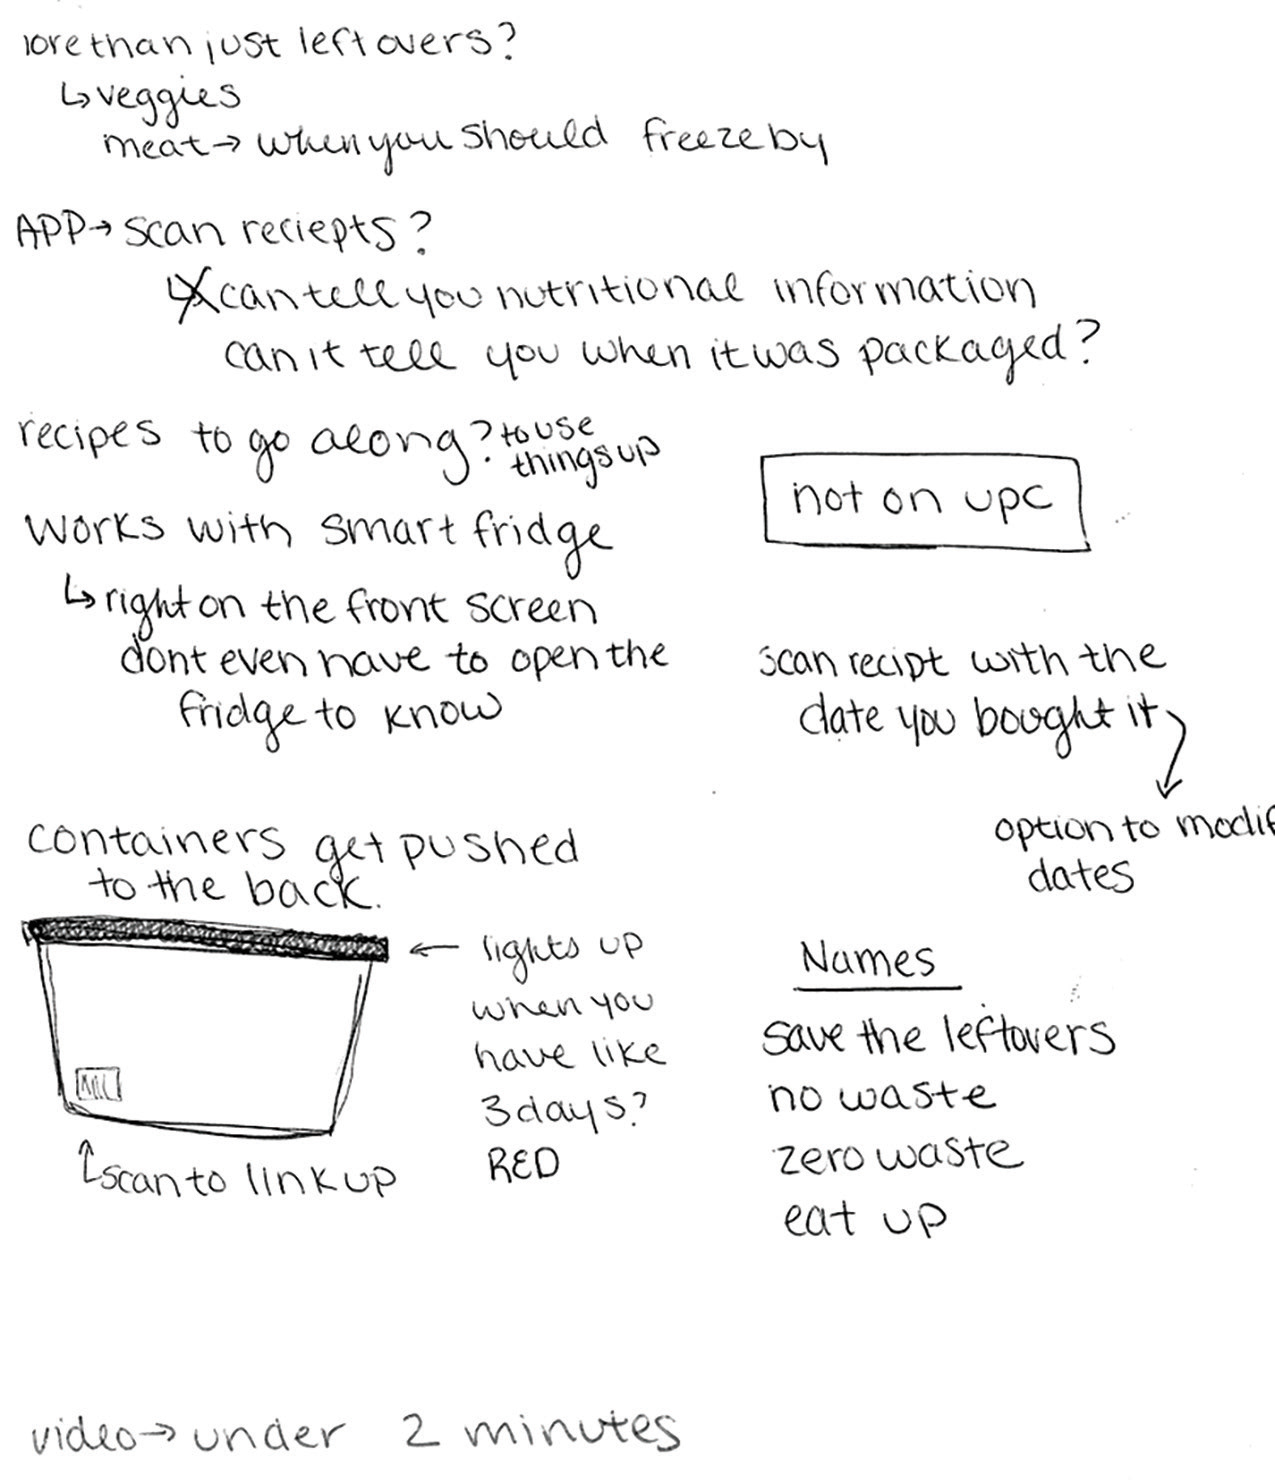 lore than just leftovers?
↳ veggies
meat → when you should freeze by
APP → scan reciepts?
↳ can tell you nutritional information
can it tell you when it was packaged?
recipes to go along? to use
things up
not on upc
works with smart fridge
↳ right on the front screen
dont even have to open the
fridge to know
scan recipt with the
date you bought it
option to modif
dates
containers get pushed
to the back.
← lights up
when you
have like
3 days?
RED
↑ scan to link up
Names
save the leftovers
no waste
zero waste
eat up
video → under 2 minutes